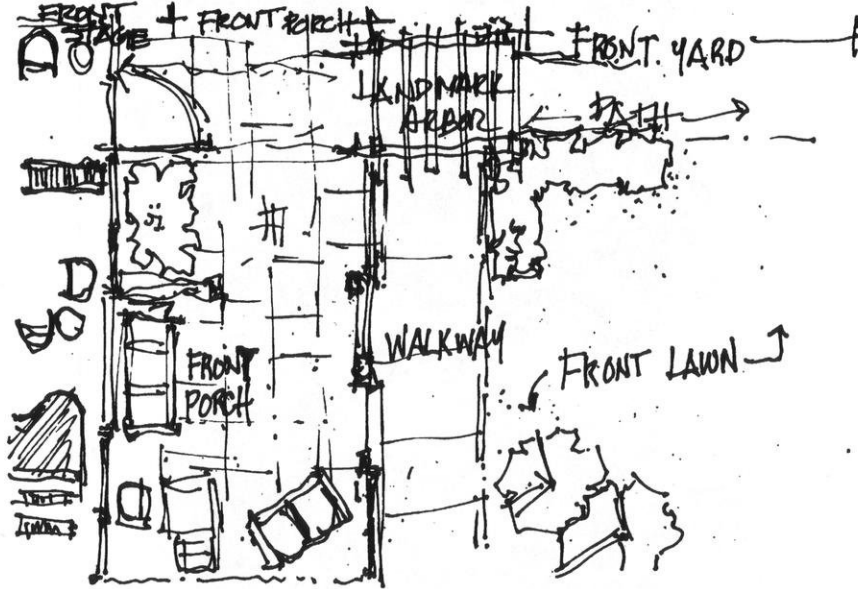 FRONT
STAGE
FRONT PORCH
FRONT YARD
LANDMARK
ARBOR
PATH
FRONT
PORCH
WALKWAY
FRONT LAWN